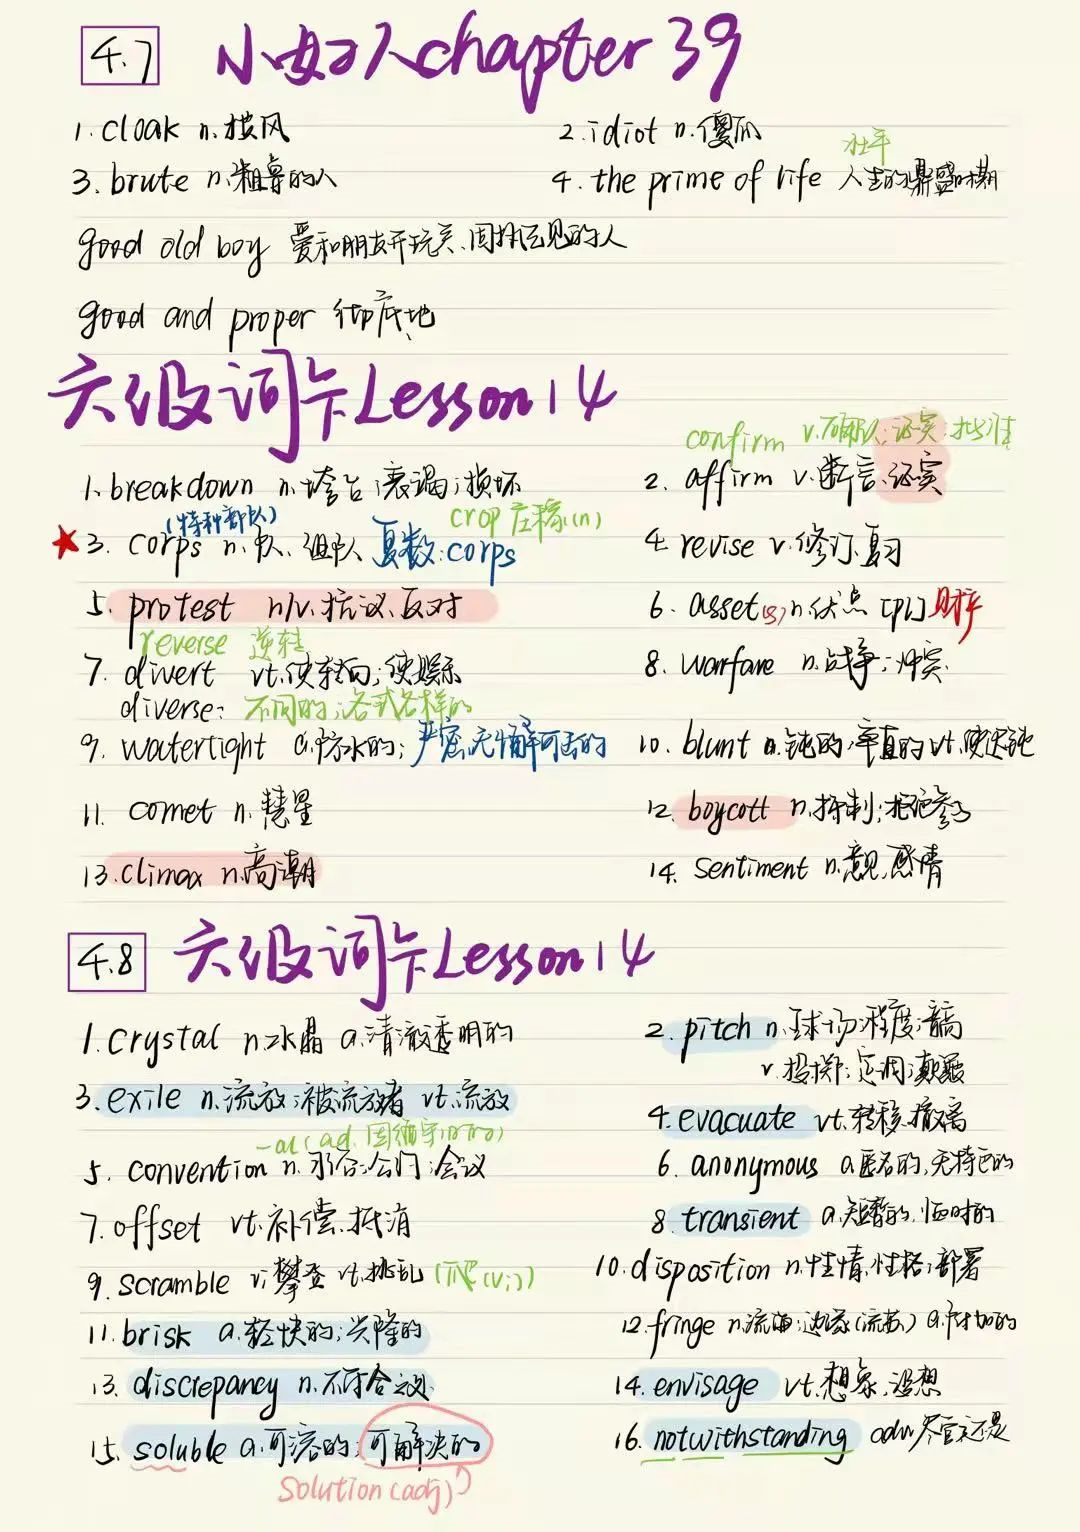 4.7 小妇人chapter 39
1. cloak n.披风 2. idiot n.傻瓜
壮年
3. brute n.粗鲁的人 4. the prime of life 人生的鼎盛时期
good old boy 爱和朋友开玩笑、固执己见的人
good and proper 彻底地
六级词卡Lesson 14
confirm v.确认;证实;批准
1. breakdown n.垮台;衰竭;损坏 2. affirm v.断言、证实
(特种部队) crop 庄稼(n)
★3. corps n.队、组队 复数:corps 4. revise v.修订、复习
5. protest n/v.抗议、反对 6. asset(s) n.优点 [pl] 财产
reverse 逆转
7. divert vt.使转向;使娱乐 8. warfare n.战争;冲突
diverse: 不同的;各式各样的
9. watertight a.防水的;严密无懈可击的 10. blunt a.钝的;率直的 vt.使迟钝
11. comet n.彗星 12. boycott n.抵制;拒绝参与
13. climax n.高潮 14. sentiment n.意见,感情
4.8 六级词卡Lesson 14
1. crystal n.水晶 a.清澈透明的 2. pitch n.球场;程度;音高
v.投掷;定调;颠簸
3. exile n.流放;被流放者 vt.流放 4. evacuate vt.转移、撤离
-al (ad.因循守旧的)
5. convention n.习俗;公约;会议 6. anonymous a.匿名的,无特色的
7. offset vt.补偿、抵消 8. transient a.短暂的,临时的
9. scramble vi.攀登 vt.扰乱 (爬(vi)) 10. disposition n.性情,性格;部署
11. brisk a.轻快的;兴隆的 12. fringe n.流海;边缘(流苏) a.附加的
13. discrepancy n.不符合之处 14. envisage vt.想象、设想
15. soluble a.可溶的;可解决的 16. notwithstanding adv.尽管;还是
solution (adj)